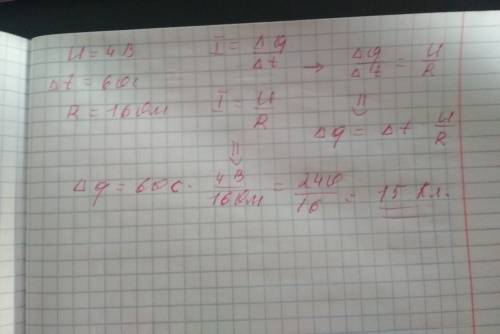 U = 4 В
Δt = 60 с
R = 16 Ом
I = Δq/Δt
I = U/R
→ Δq/Δt = U/R
⇓
Δq = Δt U/R
⇓
Δq = 60 с · 4 В/16 Ом = 240/16 = 15 Кл.